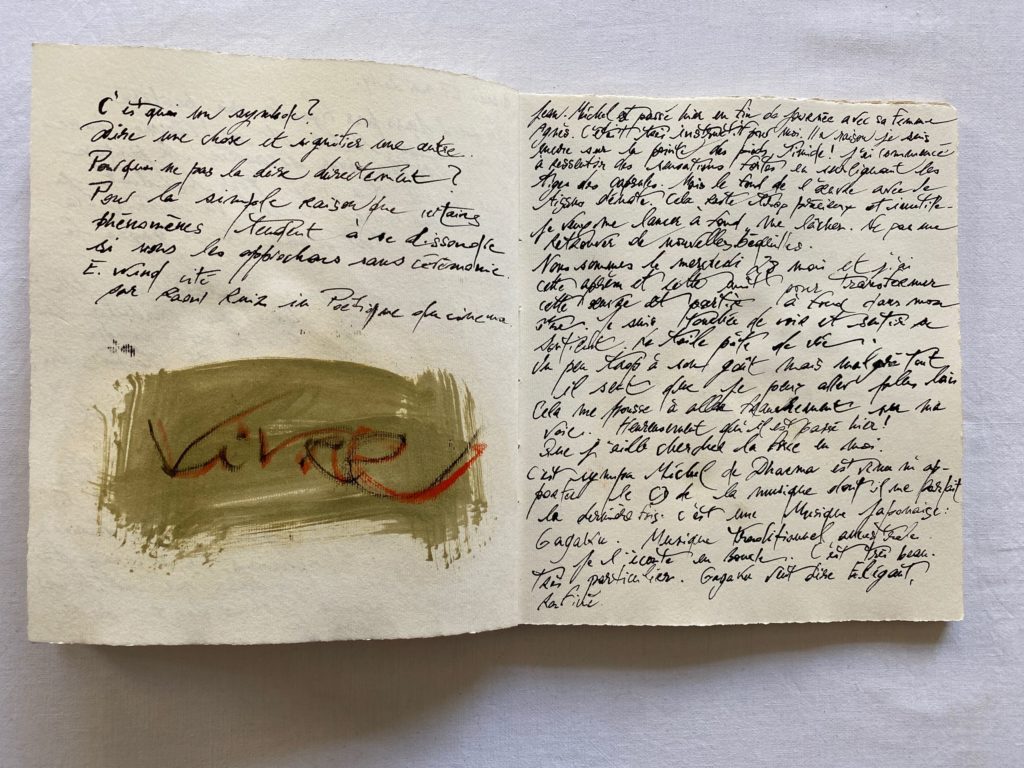 C'est quoi un symbole?
Dire une chose et signifier une autre.
Pourquoi ne pas la dire directement?
Pour la simple raison que certains
phénomènes tendent à se dissoudre
si nous les approchons sans cérémonie.
E. Wind cité
par Raoul Ruiz in Poétique du cinéma.
Vivre
Jean-Michel est passé hier en fin de journée avec sa femme
C'était très instructif pour moi. Il a raison je suis
encore sur la pointe des pieds. Timide! J'ai commencé
à ressentir des sensations fortes en soulignant les
tiges des capsules. Mais le fond de l'œuvre avec le
tissus dénote. Cela reste trop précieux et inutile.
Je vais me lancer à fond. Me lâcher. Ne pas me
retrouver de nouvelles béquilles.
Nous sommes le mercredi 23 mai et j'ai
cette aprèm et cette nuit pour transformer
cette remise et partir à fond dans mon
Je suis touchée de voir et sentir
sa toile de vie.
Un peu à son goût mais malgré tout
il sent que je peux aller plus loin
Cela me pousse à aller franchement sur ma
voie. Heureusement qu'il est passé hier!
Que j'aille chercher la force en moi.
C'est sympa Michel de Dharma est venu m'ap-
porter le CD de la musique dont il me parlait
la dernière fois. C'est une Musique Japonaise:
Gagaku. Musique traditionnel ancestrale.
Je l'écoute en boucle. C'est très beau.
Très particulier. Gagaku veut dire Elégant,
raffiné.